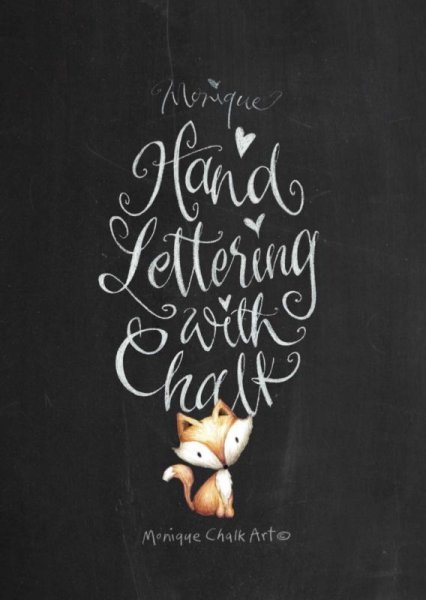 Monique
Hand
Lettering
with
Chalk
Monique Chalk Art©